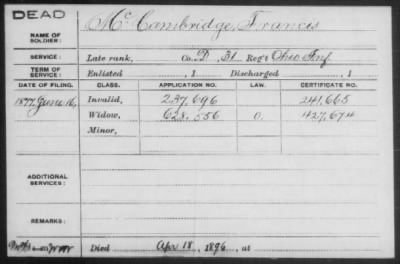 DEAD
NAME OF SOLDIER: McCambridge, Francis
SERVICE: Late rank, Co. D, 31 Reg't Ohio Inf.
TERM OF SERVICE: Enlisted , 1 Discharged , 1
DATE OF FILING. CLASS. APPLICATION NO. LAW. CERTIFICATE NO.
1877, June 16, Invalid, 237,696 241,665
Widow, 628,556 O. 427,674
Minor,
ADDITIONAL SERVICES:
REMARKS:
Died Apr 18, 1896, at